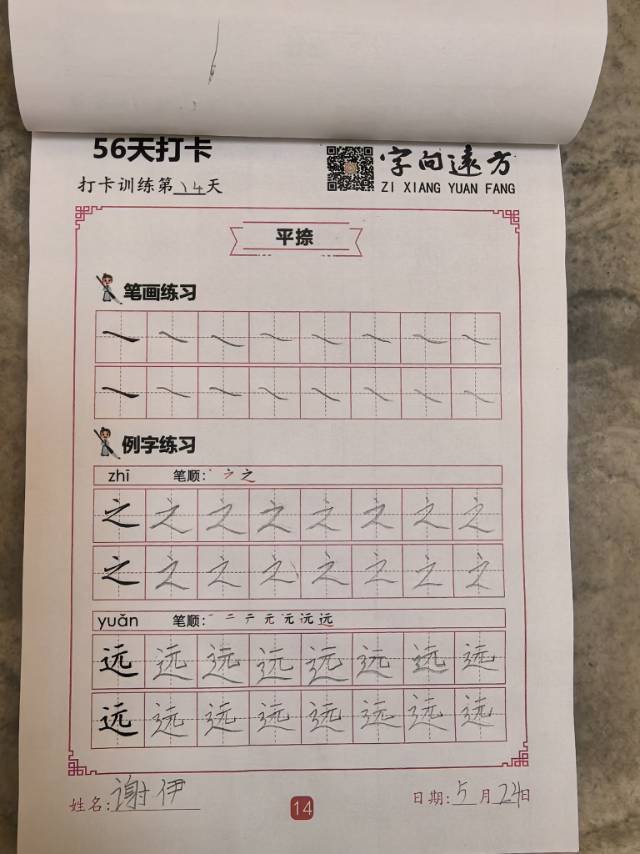 56天打卡
字向遠方
打卡训练第14天
ZI XIANG YUAN FANG
平捺
笔画练习
例字练习
zhī 笔顺: 丶 ㇇ 之
之 之 之 之 之 之 之 之
之 之 之 之 之 之 之 之
yuǎn 笔顺: 一 二 テ 元 元 沅 远
远 远 远 远 远 远 远 远
远 远 远 远 远 远 远 远
姓名: 谢伊
14
日期: 5月24日